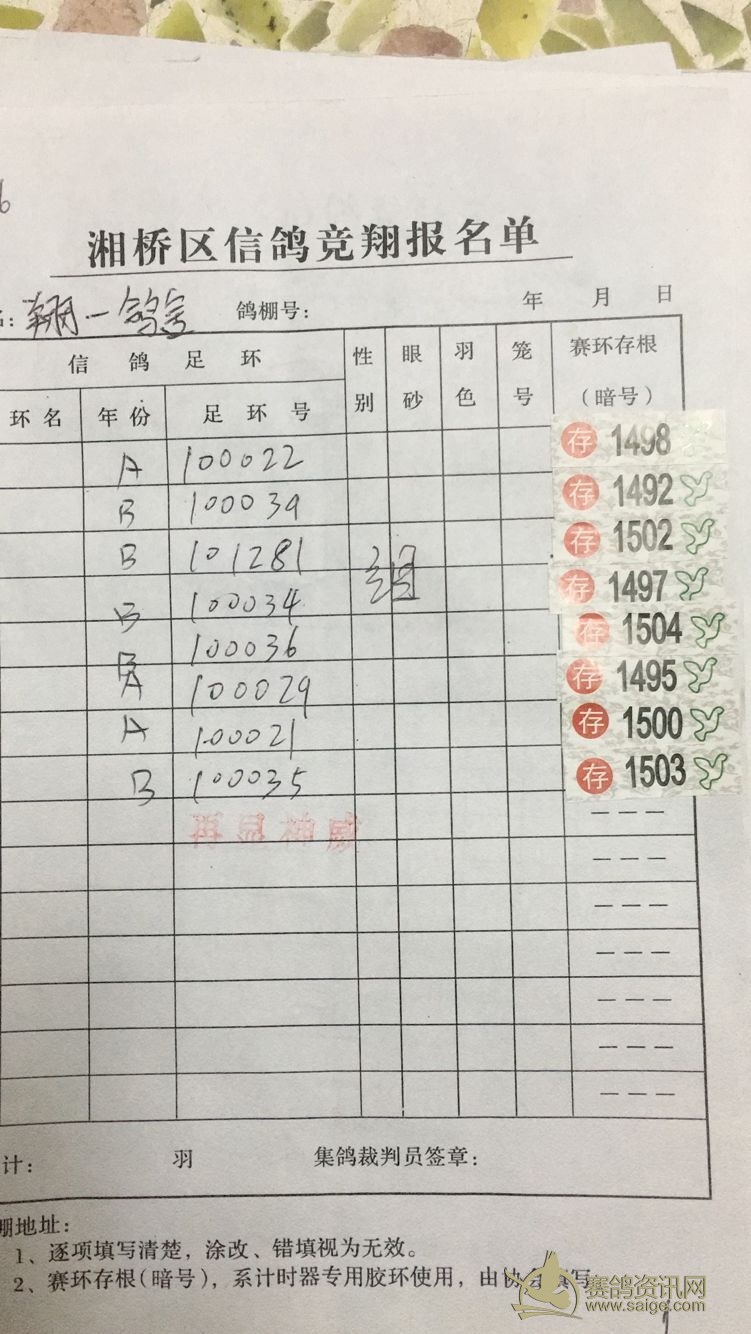 6
湘桥区信鸽竞翔报名单
名: 翔一鸽舍 鸽棚号: 年 月 日
信鸽足环 性别 眼砂 羽色 笼号 赛环存根(暗号)
环名 年份 足环号
A 100022 存 1498
B 100039 存 1492
B 101281 存 1502
B 100034 组 存 1497
B 100036 存 1504
A 100029 存 1495
A 100021 存 1500
B 100035 存 1503
再显神威
计: 羽 集鸽裁判员签章:
棚地址:
1、逐项填写清楚，涂改、错填视为无效。
2、赛环存根(暗号)，系计时器专用胶环使用，由协会填写
赛鸽资讯网
www.saige.com